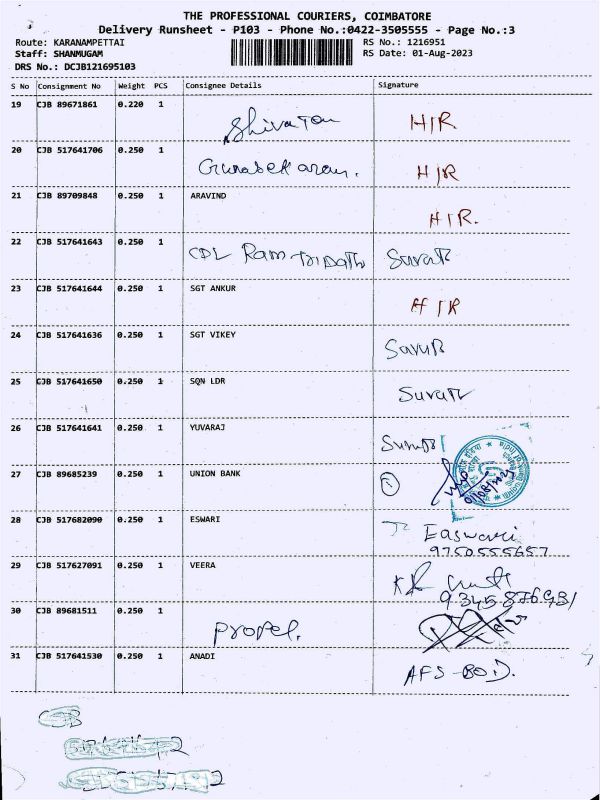 THE PROFESSIONAL COURIERS, COIMBATORE
Delivery Runsheet - P103 - Phone No.:0422-3505555 - Page No.:3
Route: KARANAMPETTAI RS No.: 1216951
Staff: SHANMUGAM RS Date: 01-Aug-2023
DRS No.: DCJB121695103
S No Consignment No Weight PCS Consignee Details Signature
19 CJB 89671861 0.220 1 H/R
20 CJB 517641706 0.250 1 Gunasekaran. H/R
21 CJB 89709848 0.250 1 ARAVIND H/R.
22 CJB 517641643 0.250 1 CPL Ram
23 CJB 517641644 0.250 1 SGT ANKUR H/R
24 CJB 517641636 0.250 1 SGT VIKEY
25 CJB 517641650 0.250 1 SQN LDR
26 CJB 517641641 0.250 1 YUVARAJ
27 CJB 89685239 0.250 1 UNION BANK
28 CJB 517682090 0.250 1 ESWARI Easwari
9750555657
29 CJB 517627091 0.250 1 VEERA
30 CJB 89681511 0.250 1 Propel.
31 CJB 517641530 0.250 1 ANADI AFS-BOD.